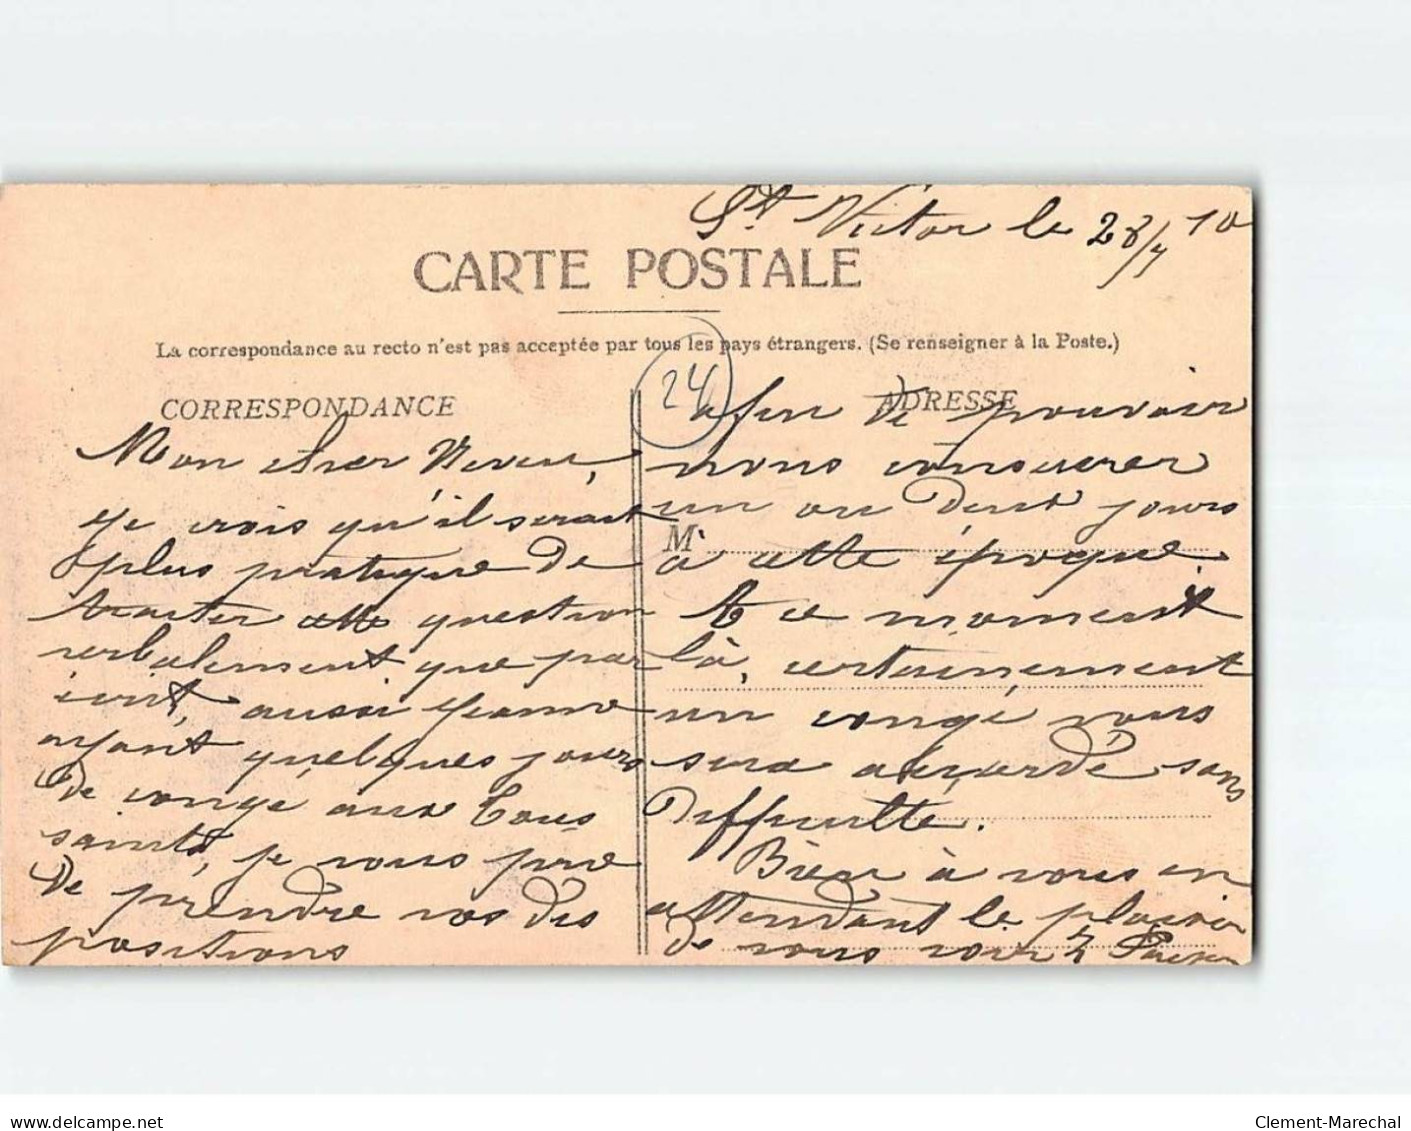 St Victor le 28/7 10
CARTE POSTALE
La correspondance au recto n'est pas acceptée par tous les pays étrangers. (Se renseigner à la Poste.)
24
CORRESPONDANCE
Mon cher Neveu,
Je crois qu'il serait
plus pratique de
traiter cette question
verbalement que par
écrit, aussi Jeanne
ayant quelques jours
de congé aux Tous
saints, je vous prie
de prendre vos dis
positions
ADRESSE
afin de pouvoir
nous consacrer
un ou deux jours
M
à cette époque
A ce moment
là, certainement
un congé vous
sera accordé sans
difficulté.
Bien à vous en
attendant le plaisir
de vous voir